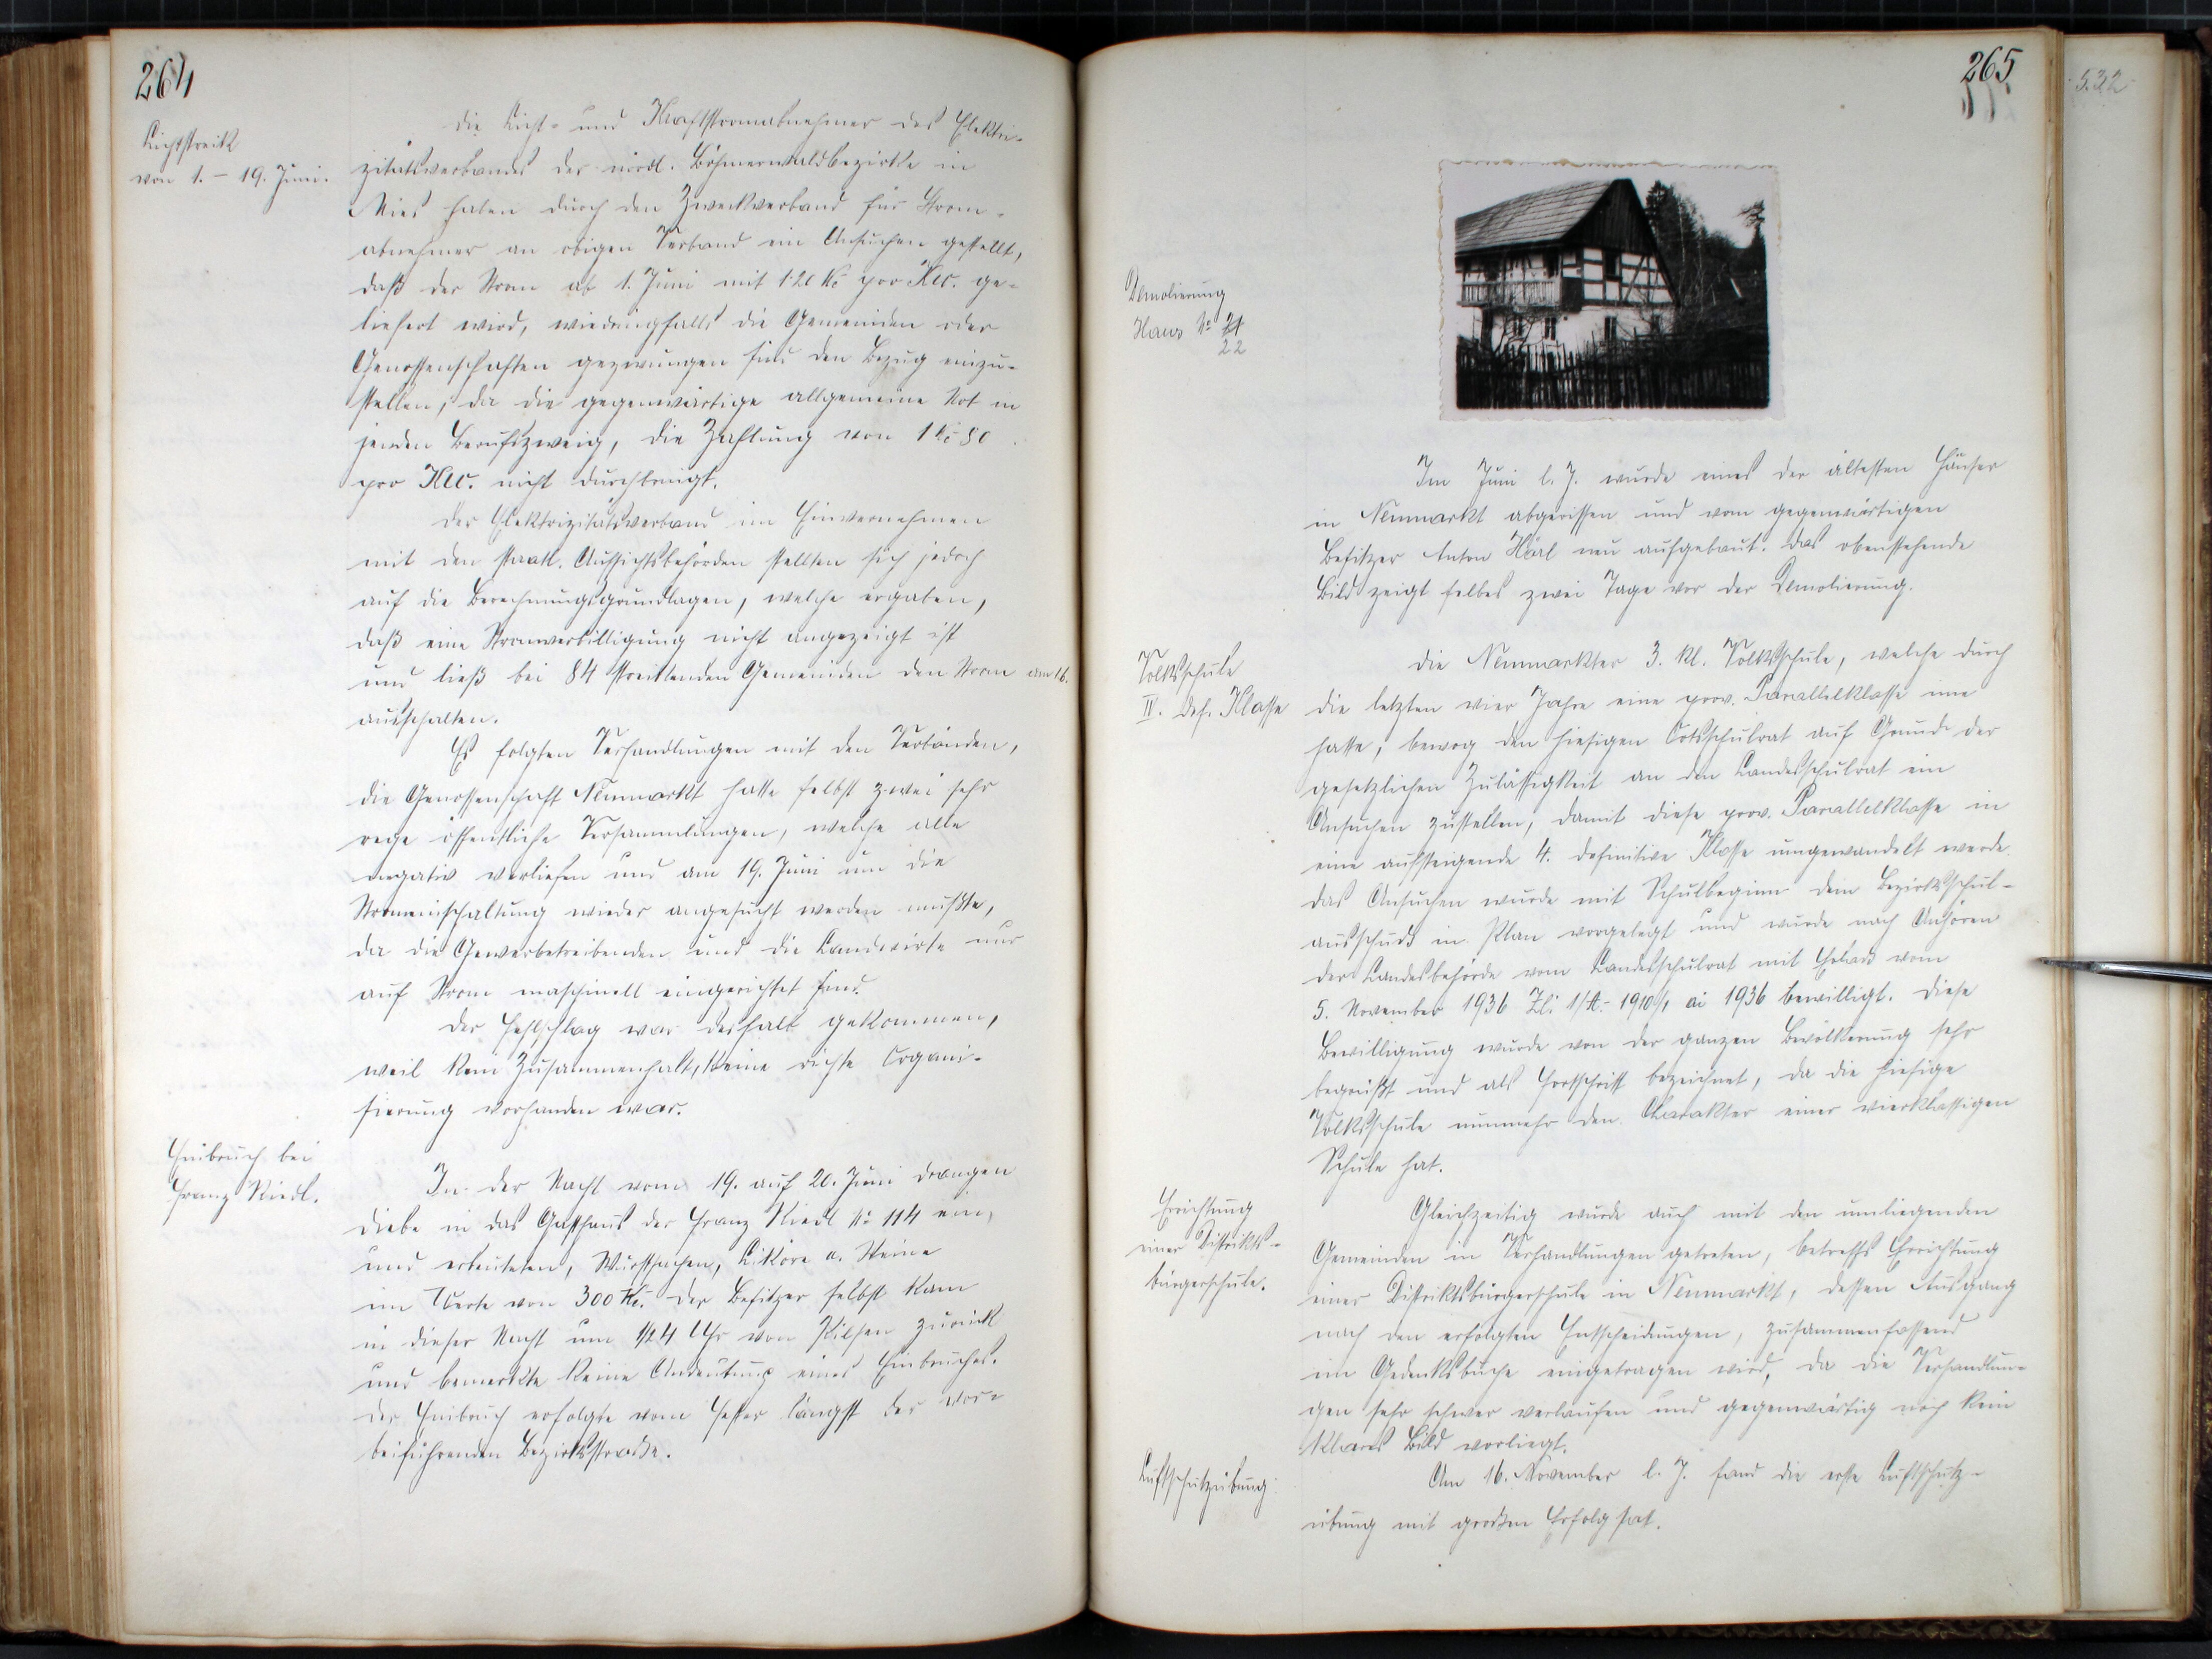 264
Lichtstreik
von 1. – 19. Juni.
Die Licht- und Kraftstromabnehmer des Elektri-
zitätsverbandes der nördl. Böhmerwaldbezirke in
Mies haben durch den Zweckverband für Strom-
abnehmer an obigen Verband ein Ansuchen gestellt,
daß der Strom ab 1. Juni mit 1·20 Kč pro Kw. ge-
liefert wird, widrigenfalls die Gemeinden oder
Genossenschaften gezwungen sind den Bezug einzu-
stellen, da die gegenwärtige allgemeine Not in
jeden Berufszweig, die Zahlung von 1 Kč 80
pro Kw. nicht durchbringt.
Der Elektrizitätsverband im Einvernehmen
mit den staatl. Aufsichtsbehörden stellten sich jedoch
auf die Berechnungsgrundlagen, welche ergaben,
daß eine Stromverbilligung nicht angezeigt ist
und ließ bei 84 streikenden Gemeinden den Strom am 16.
ausschalten.
Es folgten Verhandlungen mit den Verbänden,
die Genossenschaft Neumarkt hatte selbst zwei sehr
rege öffentliche Versammlungen, welche alle
negativ verliefen und am 19. Juni um die
Stromeinschaltung wieder angesucht werden mußte,
da die Gewerbetreibenden und die Landwirte nur
auf Strom maschinell eingerichtet sind.
Der Fehlschlag war deshalb gekommen,
weil kein Zusammenhalt, keine richte Organi-
sierung vorhanden war.
Einbruch bei
Franz Riedl.
In der Nacht vom 19. auf 20. Juni drangen
Diebe in das Gasthaus des Franz Riedl No 114 ein,
und erbeuteten, Wurstsachen, Liköre u. Weine
im Werte von 300 Kč. Der Besitzer selbst kam
in dieser Nacht um 1/2 4 Uhr von Pilsen zurück
und bemerkte keine Andeutung eines Einbruches.
Der Einbruch erfolgte vom Fenster längst der vor-
beiführenden Bezirksstraße.
265
532
Demolierung
Haus No 21
22
Im Juni l. J. wurde eines der ältesten Häuser
in Neumarkt abgerissen und vom gegenwärtigen
Besitzer Anton Hörl neu aufgebaut. Das obenstehende
Bild zeigt selbes zwei Tage vor der Demolierung.
Volksschule
IV. Def. Klasse
Die Neumarkter 3. kl. Volksschule, welche durch
die letzten vier Jahre eine prov. Parallelklasse inne
hatte, bewog den hiesigen Ortsschulrat auf Grund der
gesetzlichen Zulässigkeit an den Landesschulrat ein
Ansuchen zustellen, damit diese prov. Parallelklasse in
eine aufsteigende 4. definitive Klasse umgewandelt werde.
Das Ansuchen wurde mit Schulbeginn dem Bezirksschul-
ausschuß in Plan vorgelegt und wurde nach Anhören
der Landesbehörde vom Landesschulrat mit Erlaß vom
5. November 1936 Zl: 1/A.- 1910/1 ai 1936 bewilligt. Diese
Bewilligung wurde von der ganzen Bevölkerung sehr
begrüßt und als Fortschritt bezeichnet, da die hiesige
Volksschule nunmehr den Charakter einer vierklassigen
Schule hat.
Errichtung
einer Distrikts-
bürgerschule.
Gleichzeitig wurde auch mit den umliegenden
Gemeinden in Verhandlungen getreten, betreffs Errichtung
einer Distriktsbürgerschule in Neumarkt, dessen Ausgang
nach den erfolgten Entscheidungen, zusammenfassend
im Gedenkbuche eingetragen wird, da die Verhandlun-
gen sehr schwer verlaufen und gegenwärtig noch kein
klares Bild vorliegt.
Luftschutzübung:
Am 16. November l. J. fand die erste Luftschutz-
übung mit großem Erfolg stat.